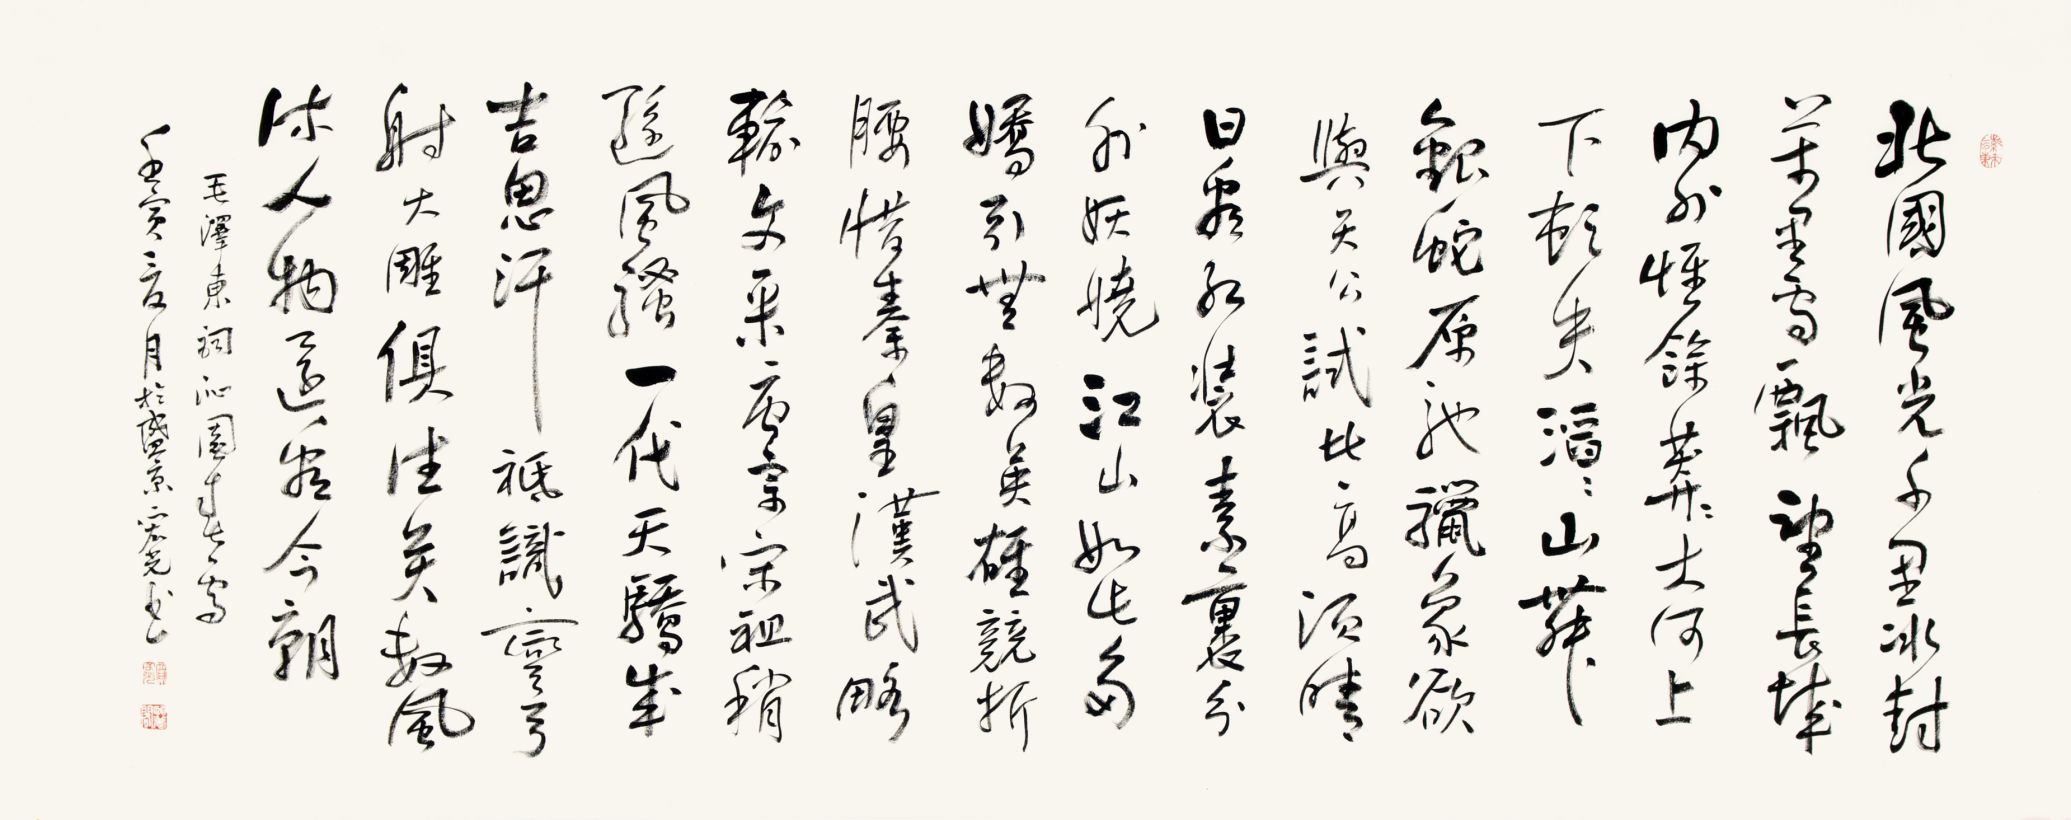 北國風光千里冰封
萬里雪飄望長城
内外惟餘莽〻大河上
下頓失滔〻山舞
銀蛇原馳蠟象欲
與天公試比高須晴
日看紅裝素裹分
外妖嬈江山如此多
嬌引無數英雄競折
腰惜秦皇漢武略
輸文采唐宗宋祖稍
遜風騷一代天驕成
吉思汗祗識彎弓
射大雕俱往矣數風
流人物還看今朝
毛澤東詞沁園春雪
壬寅夏月於盛京宏光書